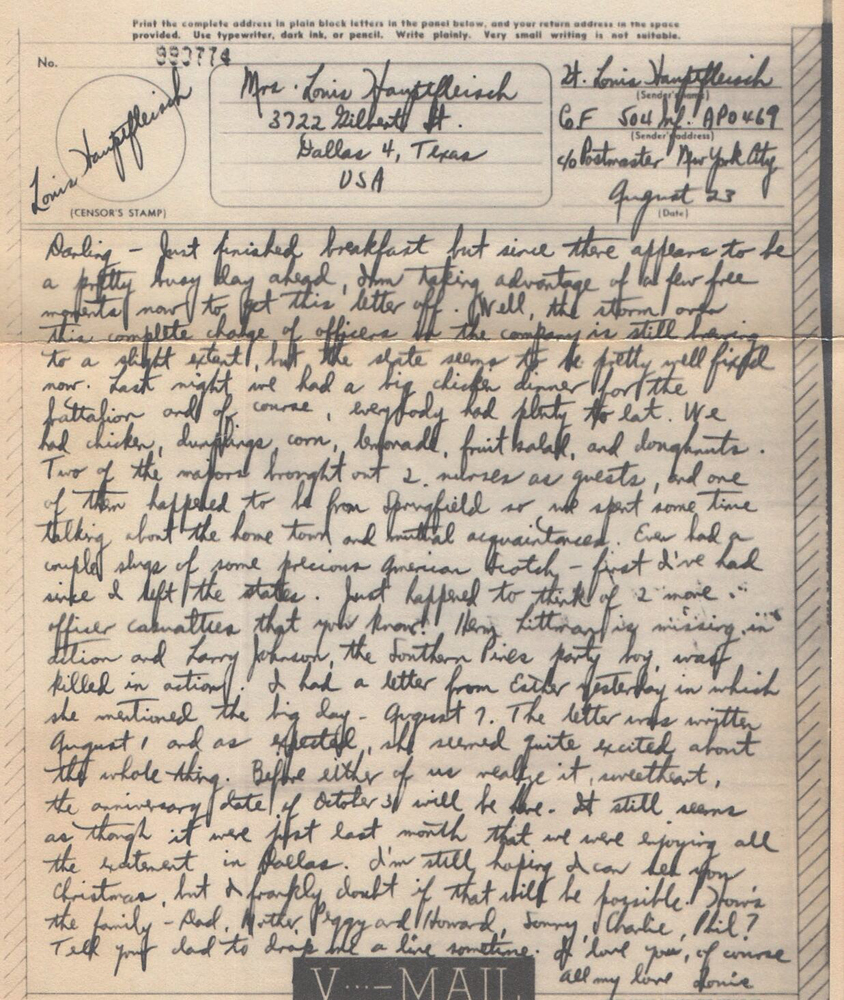 Print the complete address in plain block letters in the panel below, and your return address in the space
provided. Use typewriter, dark ink, or pencil. Write plainly. Very small writing is not suitable.
No.
993774
Louis Hauptfleisch
(CENSOR'S STAMP)
Mrs. Louis Hauptfleisch
3722 Gilbert St.
Dallas 4, Texas
USA
Lt. Louis Hauptfleisch
(Sender's name)
Co.F 504 Inf. APO 469
(Sender's address)
c/o Postmaster New York City
August 23
(Date)
Darling - Just finished breakfast but since there appears to be
a pretty busy day ahead, I'm taking advantage of a few free
moments now to get this letter off. Well, the storm over
this complete change of officers in the company is still brewing
to a slight extent, but the slate seems to be pretty well fixed
now. Last night we had a big chicken dinner for the
battalion and of course, everybody had plenty to eat. We
had chicken, dumplings, corn, lemonade, fruit salad, and doughnuts.
Two of the majors brought out 2 nurses as guests, and one
of them happened to be from Springfield so we spent some time
talking about the home town and mutual acquaintances. Even had a
couple slugs of some precious American Scotch - first I've had
since I left the states. Just happened to think of 2 more
officer casualties that you know! Henry Littman is missing in
action and Larry Johnson, the Southern Pines party boy, was
killed in action. I had a letter from Esther yesterday in which
she mentioned the big day - August 7. The letter was written
August 1 and as expected, she seemed quite excited about
the whole thing. Before either of us realize it, sweetheart,
the anniversary date of October 3 will be here. It still seems
as though it were just last month that we were enjoying all
the excitement in Dallas. I'm still hoping I can see you
Christmas, but I frankly doubt if that will be possible. How's
the family - Dad, Mother, Peggy and Howard, Sonny, Charlie, Phil?
Tell your dad to drop me a line sometime. I love you, of course
All my love Louis
V···-MAIL